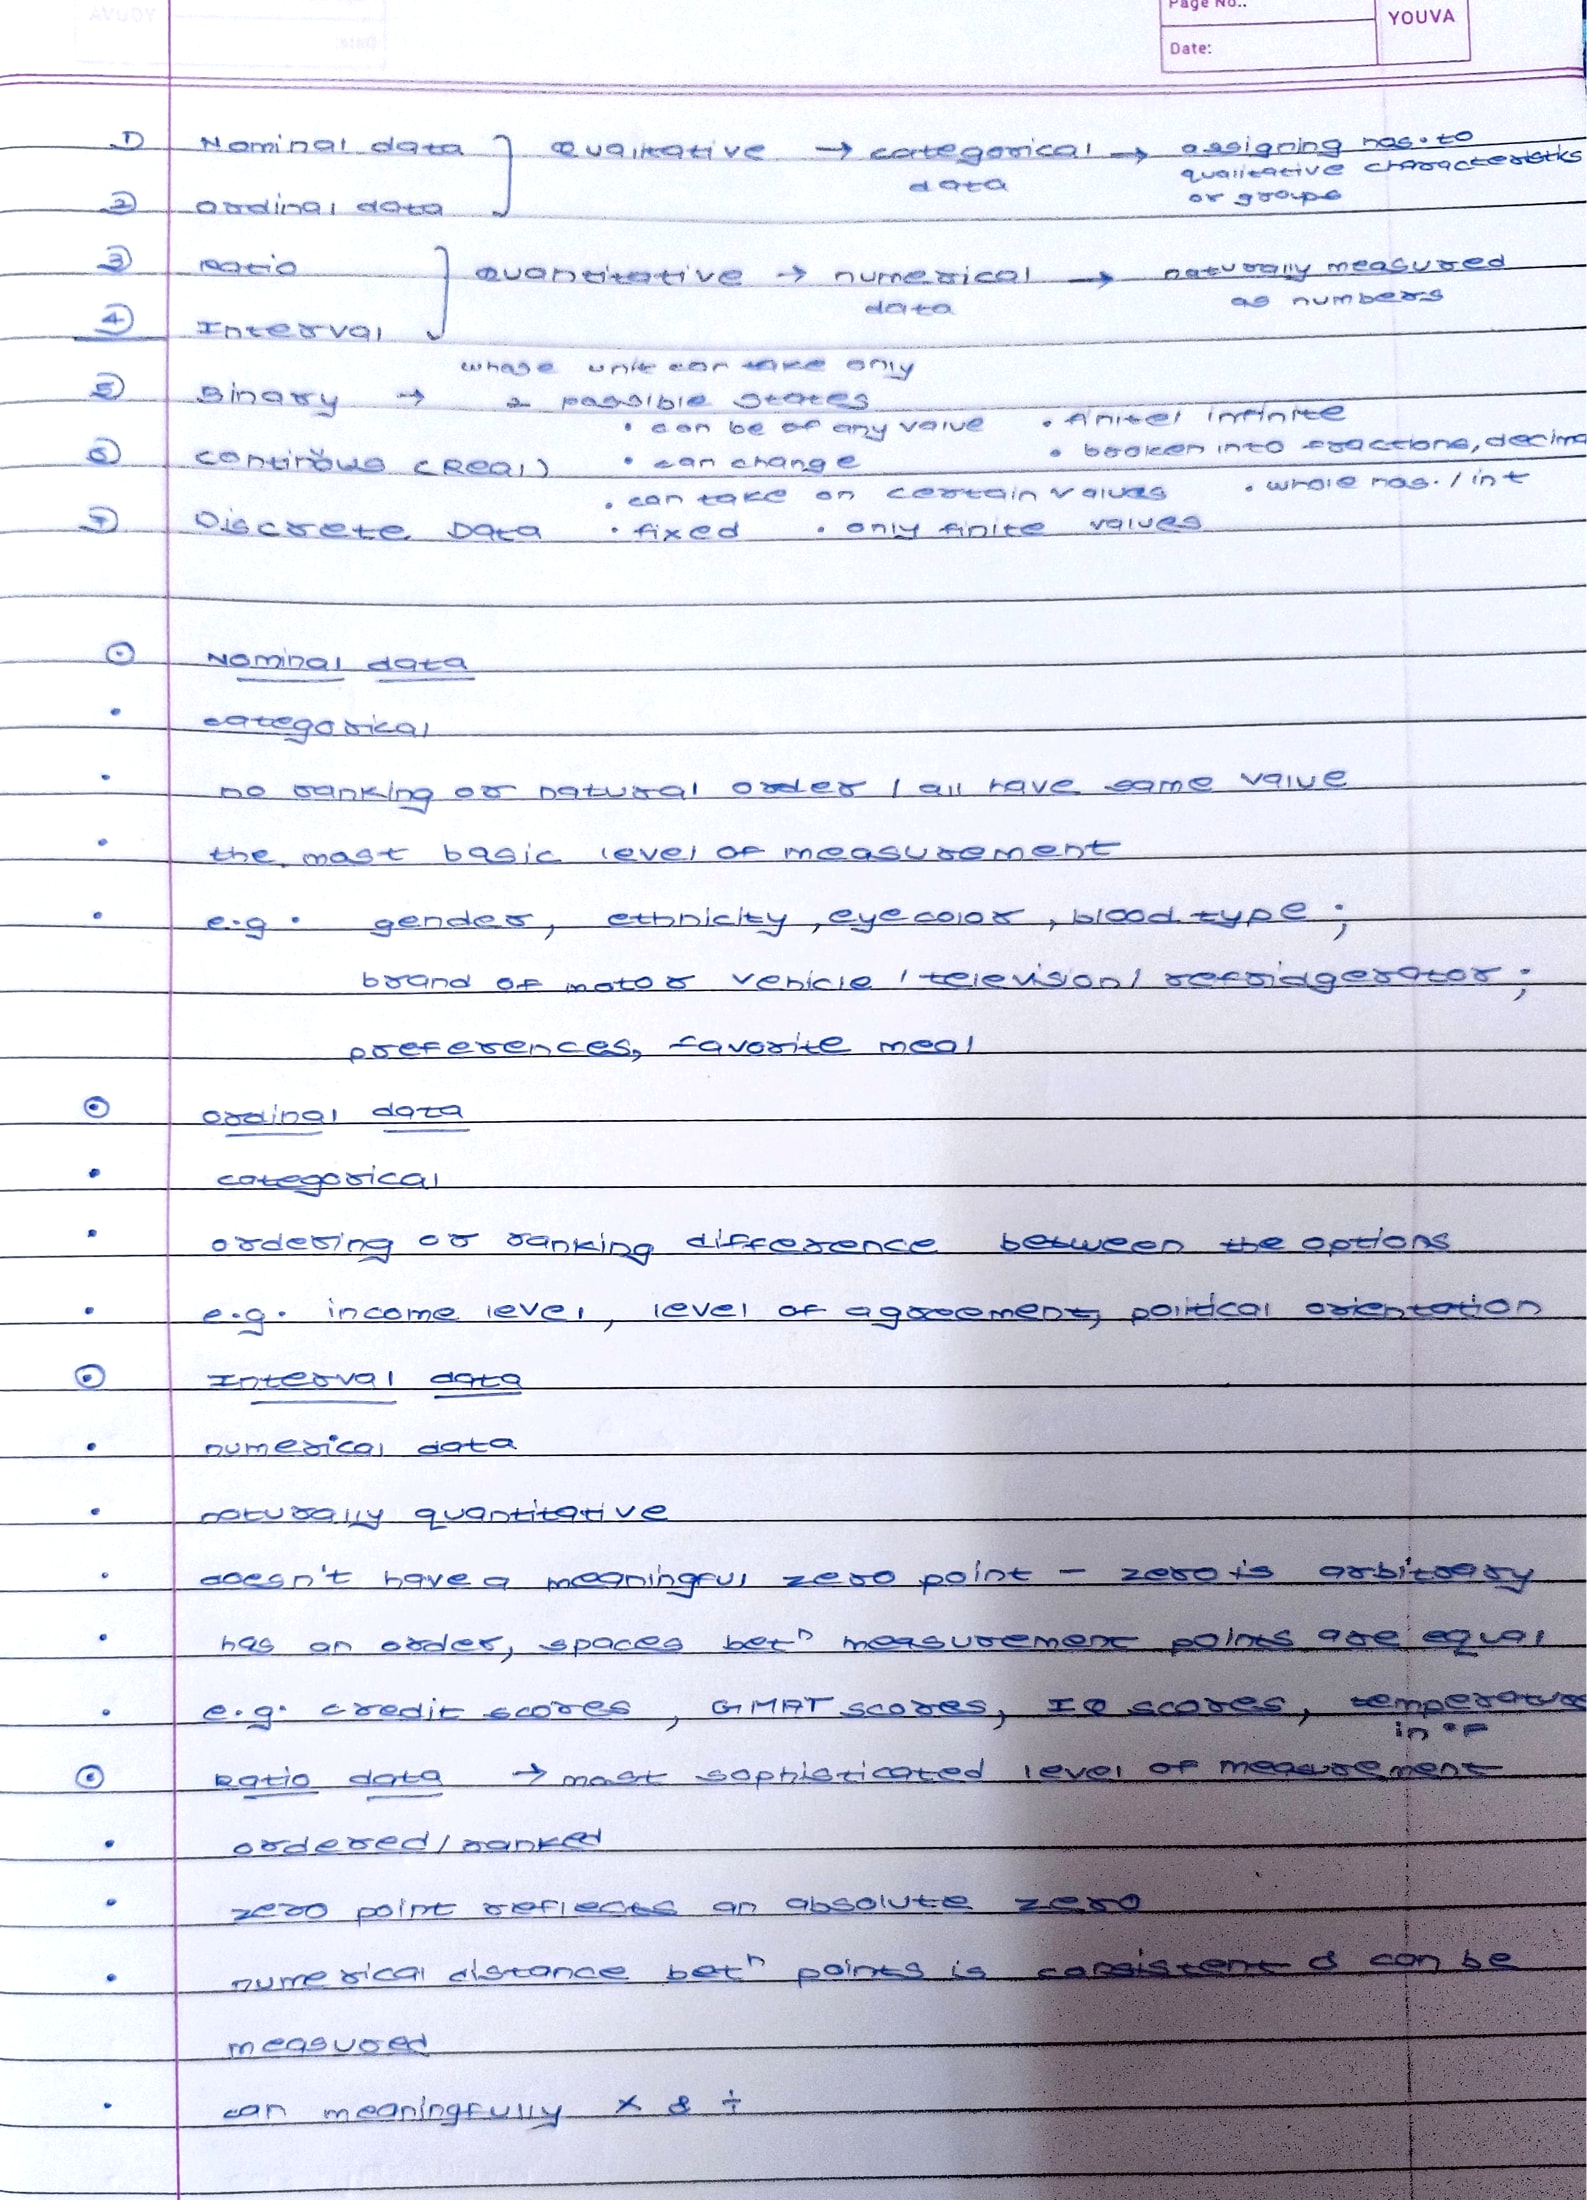 Page No..
YOUVA
Date:
① Nominal data ] Qualitative → categorical → assigning nos. to
data qualitative characteristics
② ordinal data or groups
③ Ratio ] Quantitative → numerical → naturally measured
data as numbers
④ Interval
whose unit can take only
⑤ Binary → 2 possible states
• can be of any value • finite/infinite
⑥ continous (Real) • can change • broken into fractions, decima
• can take on certain values • whole nos. / int
⑦ Discrete Data • fixed • only finite values
⊙ Nominal data
• categorical
• no ranking or natural order / all have same value
• the most basic level of measurement
• e.g. gender, ethnicity, eye color, blood type ;
brand of motor vehicle / television / refridgerator ;
preferences, favorite meal
⊙ ordinal data
• categorical
• ordering or ranking difference between the options
• e.g. income level, level of agreement, political orientation
⊙ Interval data
• numerical data
• naturally quantitative
• doesn't have a meaningful zero point - zero is arbitrary
• has an order, spaces betⁿ measurement points are equal
• e.g. credit scores, GMAT scores, IQ scores, temperature
in °F
⊙ Ratio data → most sophisticated level of measurement
• ordered / ranked
• zero point reflects an absolute zero
• numerical distance betⁿ points is consistent & can be
measured
• can meaningfully × & ÷